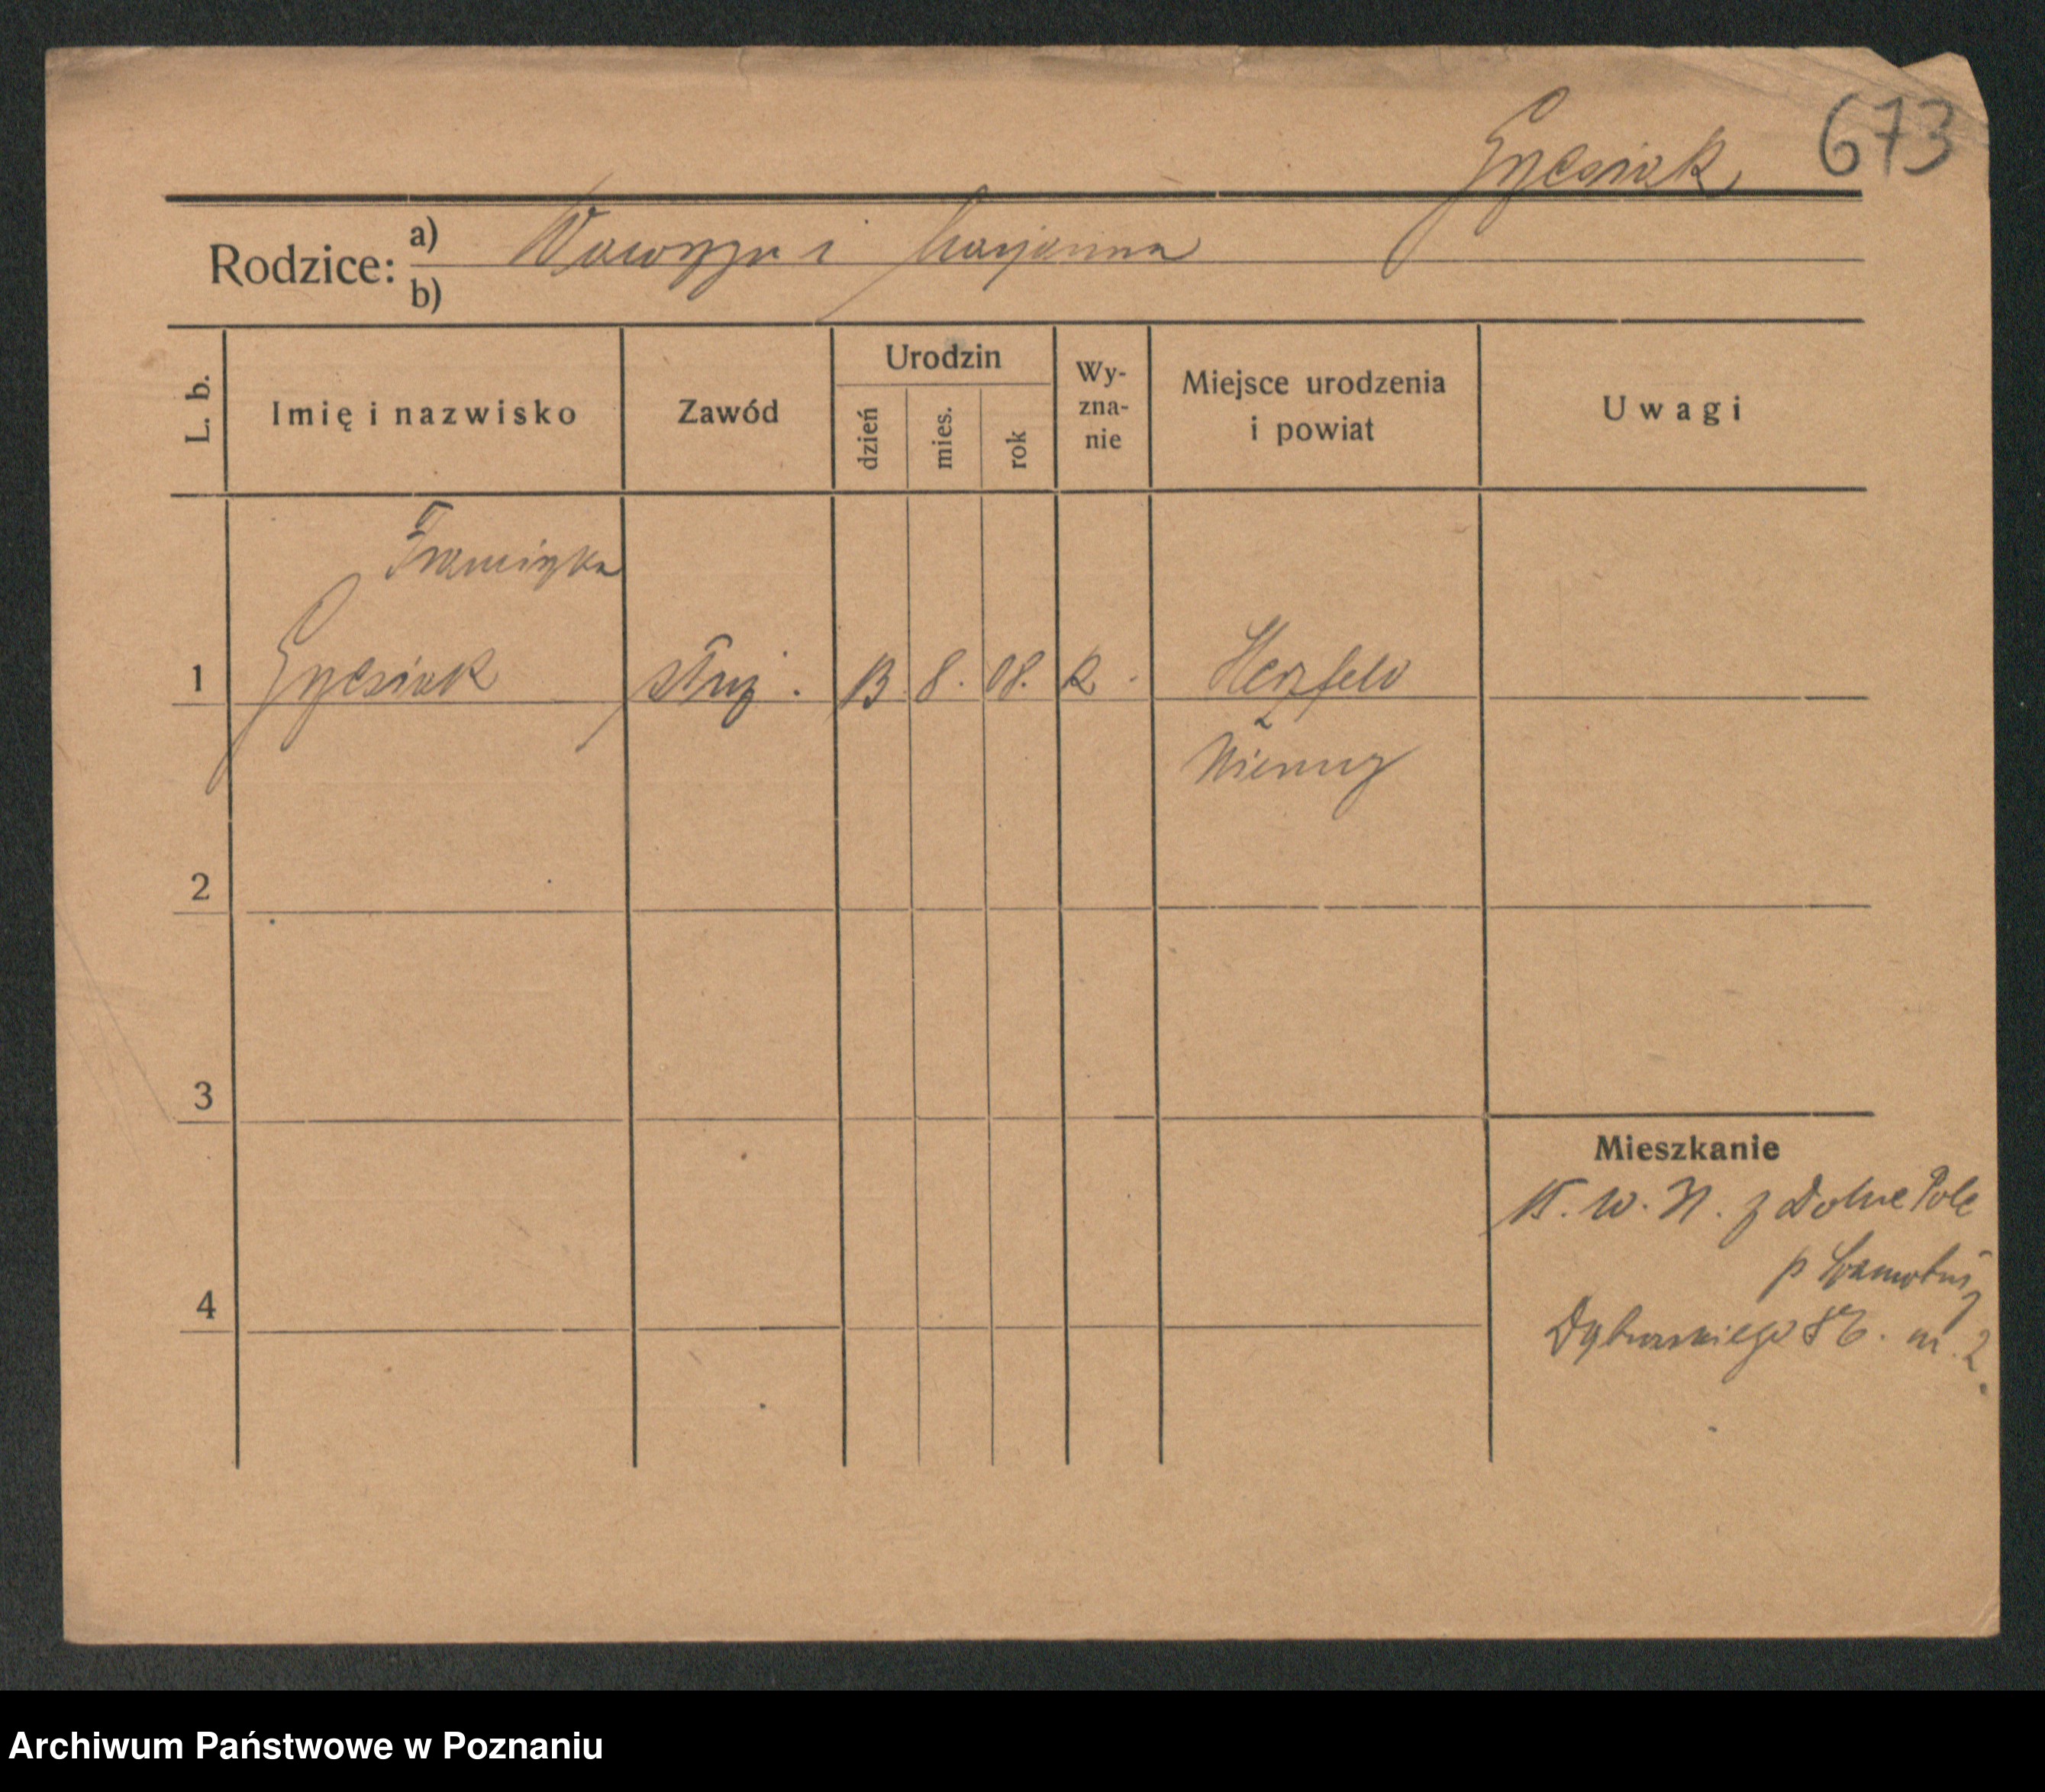 673
Rodzice: a) Wawrzyn i Marjanna
b)
L. b. Imię i nazwisko Zawód Urodzin dzień mies. rok Wy-zna-nie Miejsce urodzenia i powiat Uwagi
Franciszka
1 służ. 13. 8. 08. R. Herzfeld
Niemcy
2
3
Mieszkanie
15. W. N. z Dolne Pole
p
4
Dąbrowskiego m. 2.
Archiwum Państwowe w Poznaniu